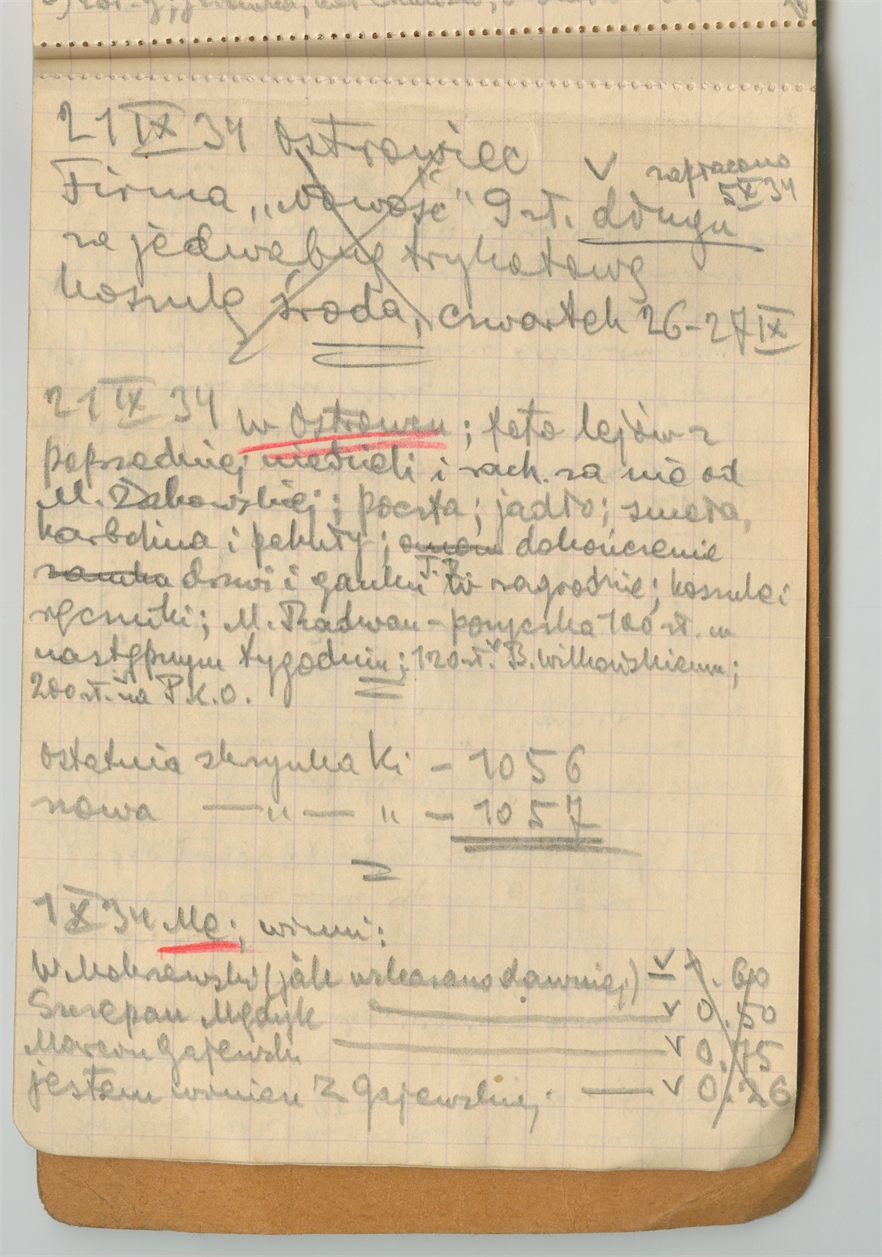 21 IX 34 Ostrowiec
V zapłacono
5 X 34
Firma „Nowość" 9 zł. długu
za jedwabną trykotową
koszulę środa, czwartek 26-27 IX
21 IX 34 w Ostrowcu; foto lejów z
poprzedniej niedzieli i rach. za nie od
M. Żakowskiej; poczta; jadło; smoła,
karbolina i pakuły; dokończenie
drzwi i ganku w zagrodzie; koszule i
ręczniki; M. Radwan - pożyczka 100 zł. w
następnym tygodniu; 120 zł. B. Witkowskiemu;
200 zł. na P.K.O.
ostatnia skrzynka Ki - 1056
nowa — „ — „ - 1057
1 X 34 Mę; winni:
W. Mokrzewski (jak wskazano dawniej) — V 1.60
Szczepan Mędyk — V 0.50
Marcin Gajewski — V 0.75
jestem winien Z Gajewskiej — V 0.26